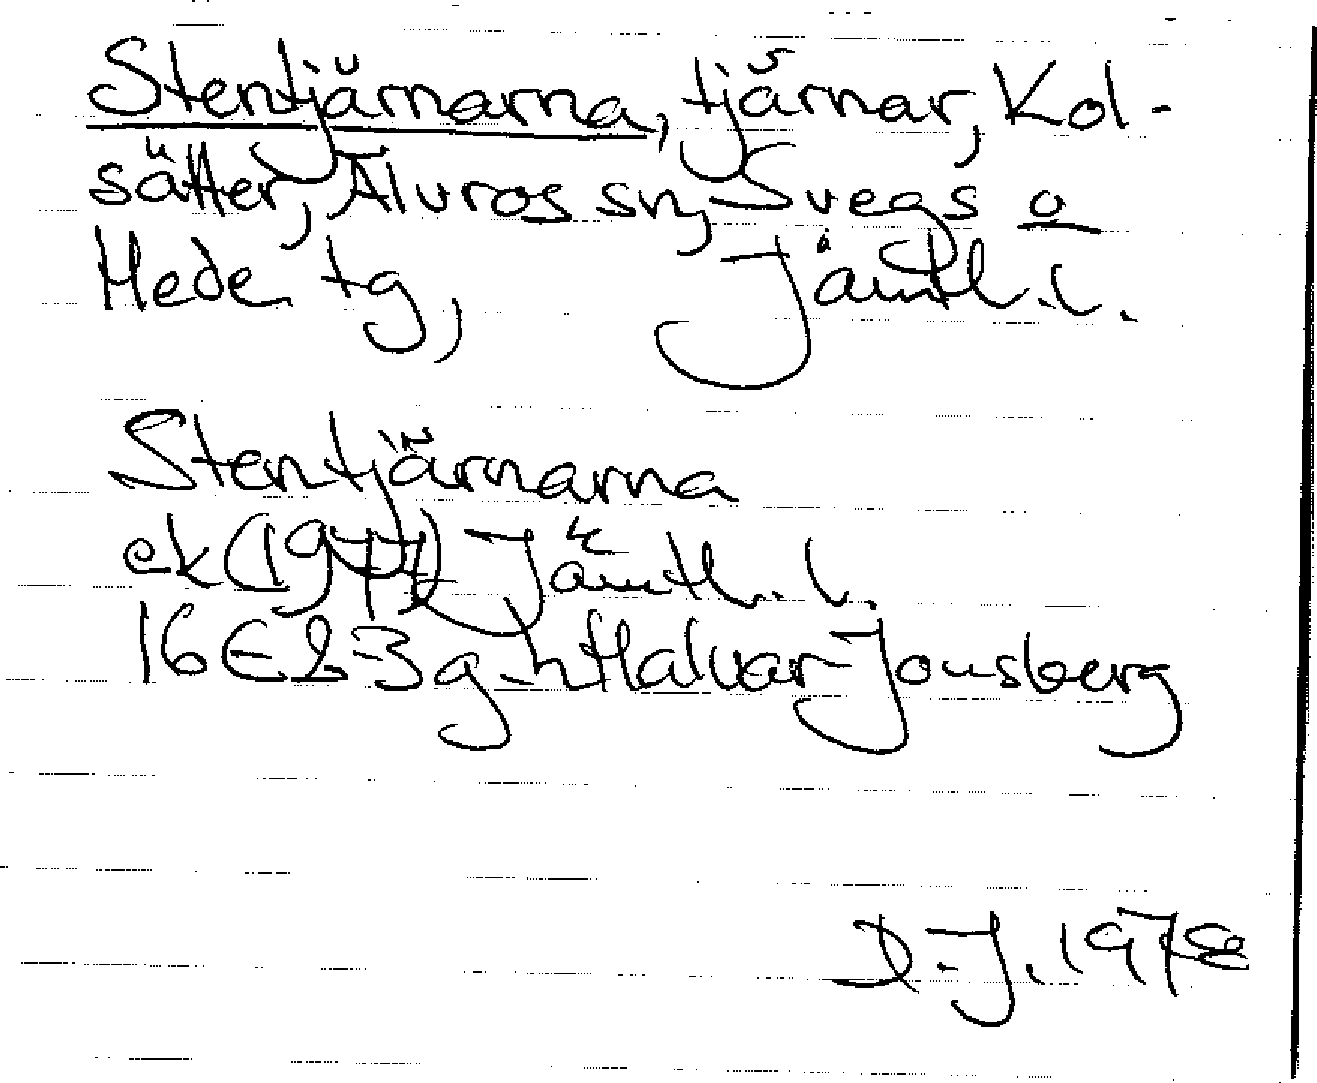 Stentjärnarna, tjärnar, Kol-
sätter, Älvros sn, Svegs o
Hede tg, Jämtl. l.
Stentjärnarna
ek (1977) Jämtl. l.
16E 2-3 g-h Halvar Jonsberg
D. J. 1978